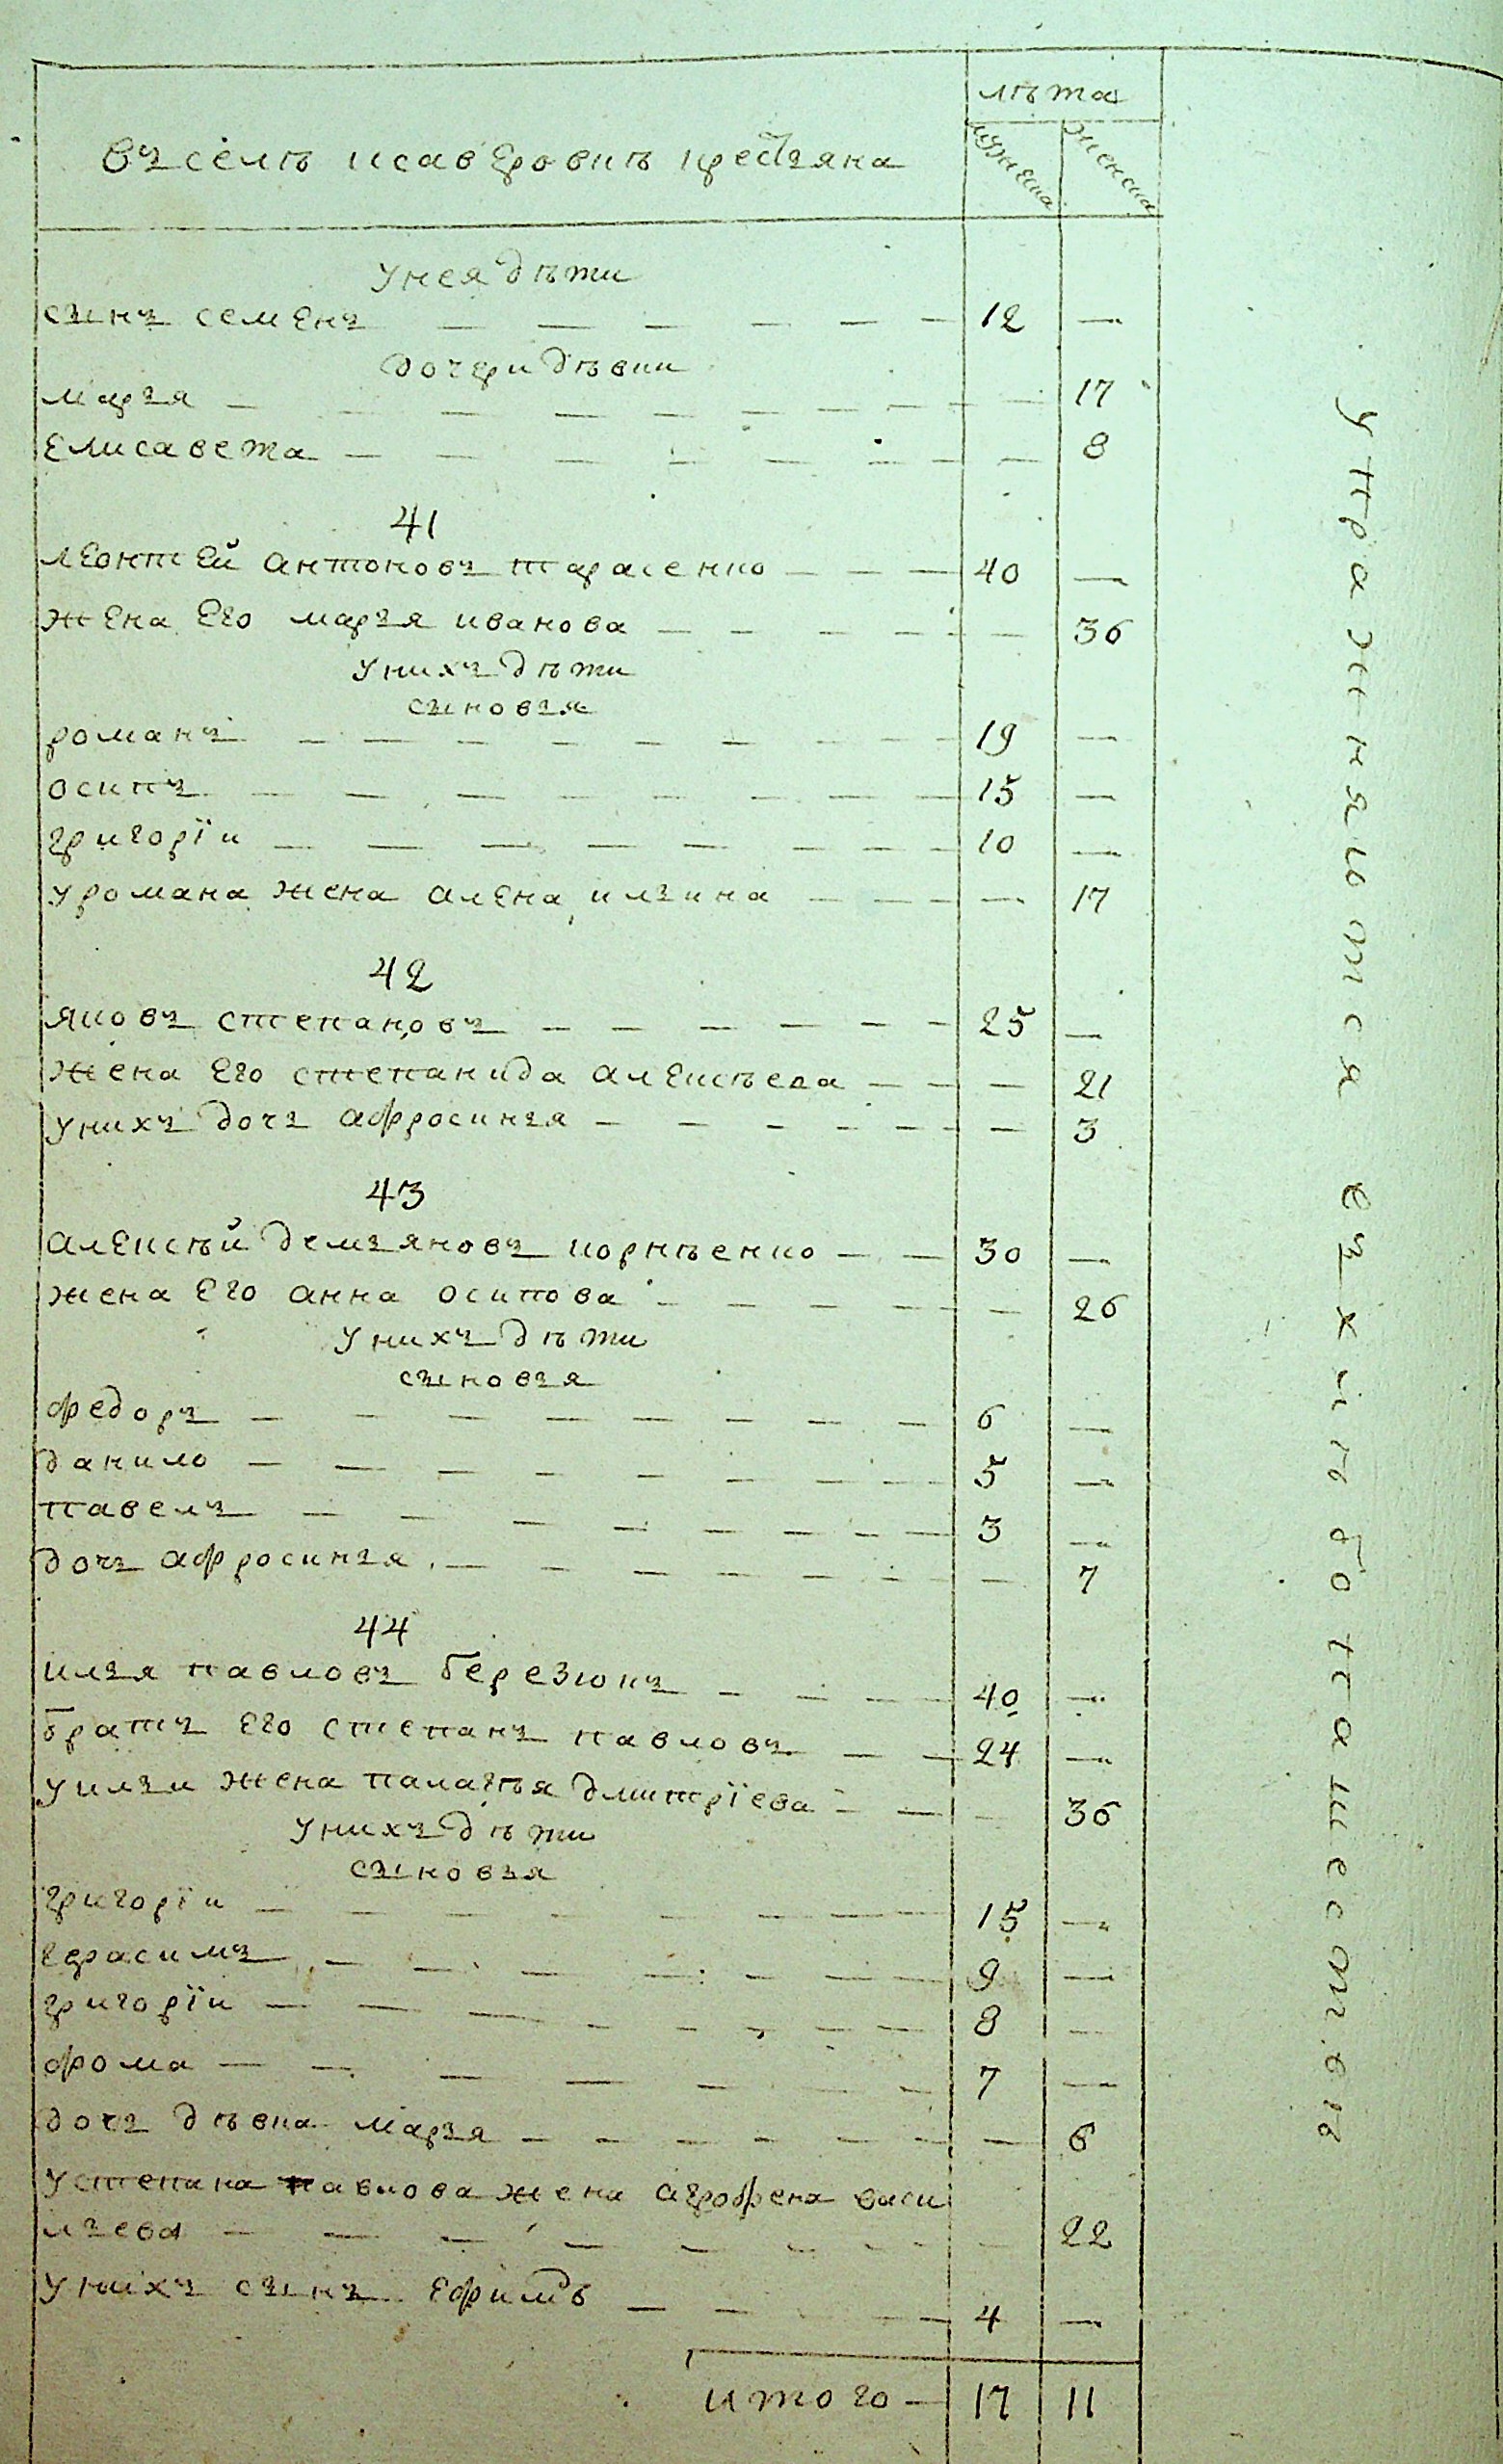 лѣта
въ селѣ исавѣровкѣ крестьяна
мужеска
женска
у нея дѣти
сынъ семенъ — — — — — — 12 —
дочери дѣвки
марья — — — — — — — — — 17
елисавета — — — — — — — — 8
41
леонтей антоновъ тарасенко — — — 40 —
жена его марья иванова — — — — — 36
у нихъ дѣти
сыновья
романъ — — — — — — — — 19 —
осипъ — — — — — — — — 15 —
григорїи — — — — — — — — 10 —
у романа жена алена ильина — — — — 17
42
яковъ степановъ — — — — — — 25 —
жена его степанида алексѣева — — — 21
у нихъ дочь афросинья — — — — — — — 3
43
алексѣй демьяновъ корнѣенко — — 30 —
жена его анна осипова — — — — — — 26
у нихъ дѣти
сыновья
федоръ — — — — — — — — 6 —
данило — — — — — — — — 5 —
павелъ — — — — — — — — 3 —
дочь афросинья — — — — — — — 7
44
илья павловъ березюкъ — — — — 40 —
братъ его степанъ павловъ — — 24 —
у ильи жена палагѣя дмитрїева — — — 36
у нихъ дѣти
сыновья
григорїи — — — — — — — — 15 —
герасимъ — — — — — — — 9 —
григорїи — — — — — — — — 8 —
фома — — — — — — 7 —
дочь дѣвка марья — — — — — — — — 6
у степана павлова жена агрофена васи
льева — — — — — — — — — 22
у нихъ сынъ ефимъ — — — — 4 —
итого — 17 11
упражняются въ хлѣбопашествѣ